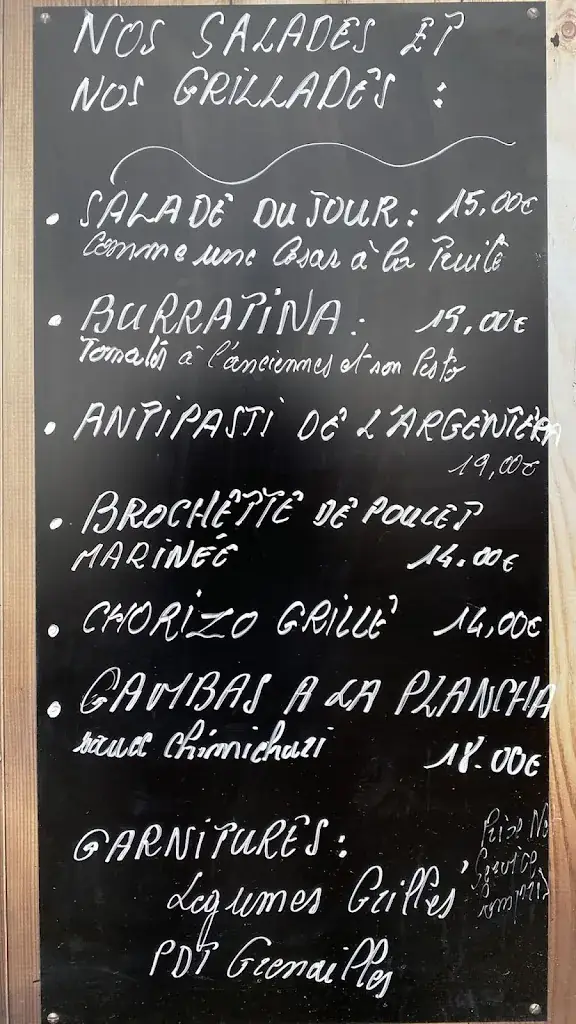 NOS SALADES ET
NOS GRILLADES :
• SALADE DU JOUR : 15,00€
Comme une César à la Truite
• BURRATINA : 19,00€
Tomates à l'anciennes et son Pesto
• ANTIPASTI DE L'ARGENTERA
19,00€
• BROCHETTE DE POULET
MARINÉE 14.00€
• CHORIZO GRILLÉ 14,00€
• GAMBAS A LA PLANCHA
sauce Chimichuri 18.00€
GARNITURES :
Légumes Grillés
PDT Grenailles
Prix Net
Service
compris